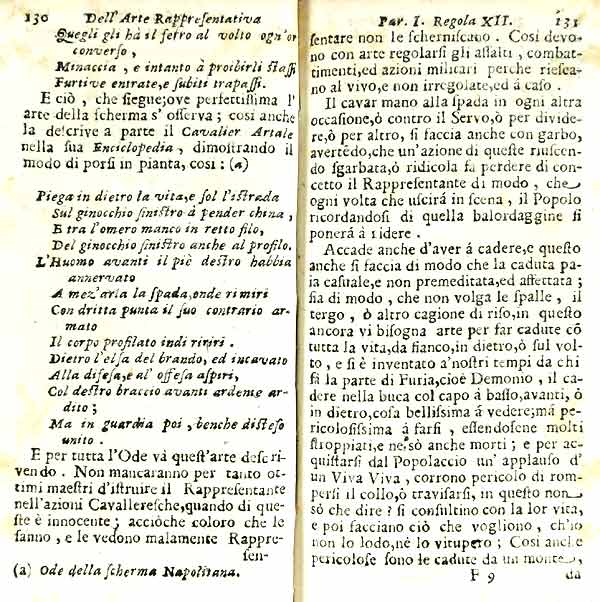 130 Dell' Arte Rappresentativa
Quegli gli hà il ferro al volto ogn'or
converso,
Minaccia, e intanto à proibirli stassi
Furtive entrate, e subiti trapassi.
E ciò, che siegue; ove perfettissima l'
arte della scherma s' osserva; cosi anche
la descrive a parte il Cavalier Artale
nella sua Enciclopedia, dimostrando il
modo di porsi in pianta, cosi: (a)
Piega in dietro la vita, e sol l'istrada
Sul ginocchio sinistro à pender china,
E tra l'omero manco in retto filo,
Del ginocchio sinistro anche al profilo.
L'Huomo avanti il piè destro habbia
annervato
A mez'arla la spada, onde rimiri
Con dritta punta il suo contrario ar-
mato
Il corpo profilato indi ririri.
Dietro l'elsa del brando, ed incavato
Alla difesa, e al' offesa aspiri,
Col destro braccio avanti ardente ar-
dito;
Ma in guardia poi, benche disteso
unito.
E per tutta l'Ode và quest'arte descri-
vendo. Non mancaranno per tanto ot-
timi maestri d'istruire il Rappresentante
nell'azioni Cavalleresche, quando di que-
ste è innocente; acciòche coloro che le
sanno, e le vedono malamente Rappre-
sen-
(a) Ode della scherma Napolitana.
Par. I. Regola XII. 131
sentare non le scherniscano. Cosi devo-
no con arte regolarsi gli assalti, combat-
timenti, ed azioni militari perche riesca-
no al vivo, e non irregolate, ed à caso.
Il cavar mano alla spada in ogni altra
occasione, ò contro il Servo, ò per divide-
re, ò per altro, si faccia anche con garbo,
avertēdo, che un'azione di queste riuscen-
do sgarbata, ò ridicola fa perdere di con-
cetto il Rappresentante di modo, che
ogni volta che uscirá in scena, il Popolo
ricordandosi di quella balordaggine si
ponerá à ridere.
Accade anche d'aver á cadere, e questo
anche si faccia di modo che la caduta pa-
ia casuale, e non premeditata, ed affettata;
sia di modo, che non volga le spalle, il
tergo, ò altro cagione di riso, in questo
ancora vi bisogna arte per far cadute cō
tutta la vita, da fianco, in dietro, ò sul vol-
to, e si è inventato a'nostri tempi da chi
fà la parte di Furia, cioè Demonio, il ca-
dere nella buca col capo à basso, avanti, ò
in dietro, cosa bellissima á vedere; má pe-
ricolosissima á farsi, essendosene molti
stroppiati, e ne sò anche morti; e per ac-
quistarsi dal Popolaccio un' applauso d'
un Viva Viva, corrono pericolo di rom-
persi il collo, ò travisarsi, in questo non
sò che dire? si consultino con la lor vita,
e poi facciano ciò che vogliono, ch'io
non lo lodo, né lo vitupero; Cosi anche
pericolose sono le cadute da un monte,
F 9 da